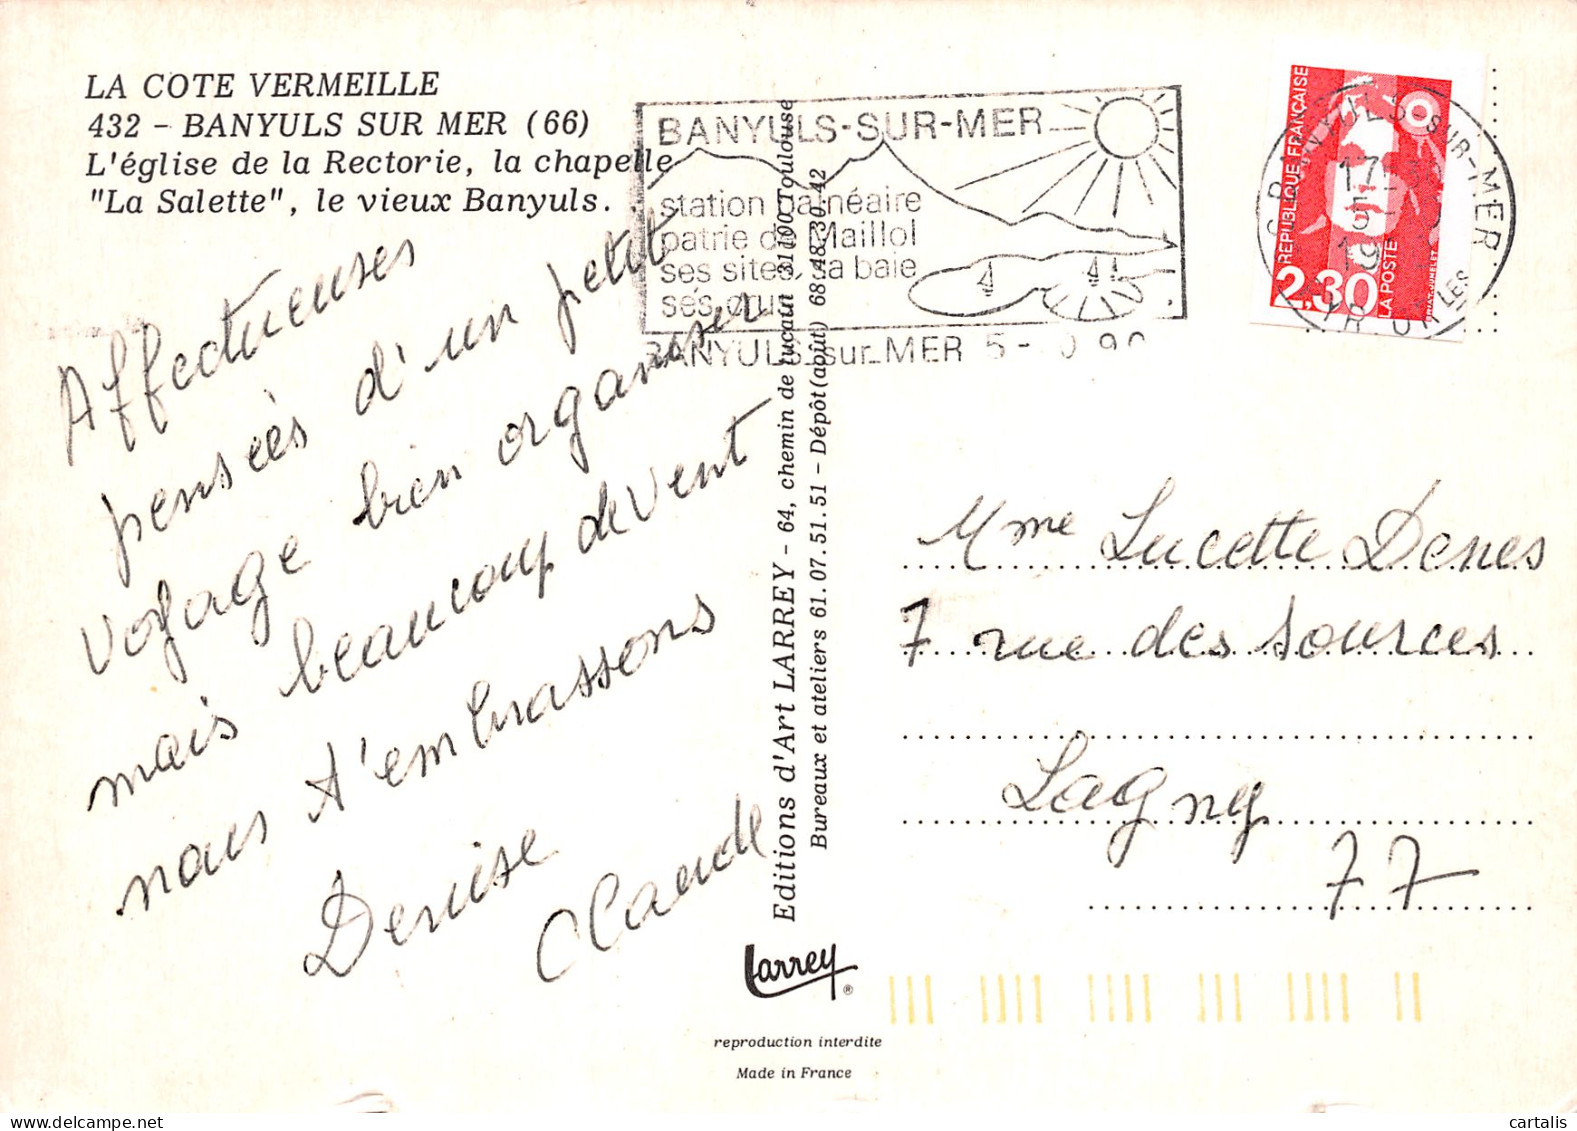 LA COTE VERMEILLE
432 - BANYULS SUR MER (66)
L'église de la Rectorie, la chapelle
"La Salette", le vieux Banyuls.
Affectueuses
pensées d'un petit
voyage bien organiser
mais beaucoup de vent
nous t'embrassons
Denise
Claude
BANYULS-SUR-MER
station balnéaire
patrie de Maillol
ses sites, sa baie
ses
BANYULS sur MER 5 -
Editions d'Art LARREY - 64, chemin de lucain 31100 Toulouse
Bureaux et ateliers 61.07.51.51 - Dépôt (août) 68.48.30.42
Larrey ®
reproduction interdite
Made in France
REPUBLIQUE FRANÇAISE
2,30
LA POSTE
BANYULS-SUR-MER
17
5
19
Mme Lucette Denes
7 rue des sources
Lagny
77
cartalis